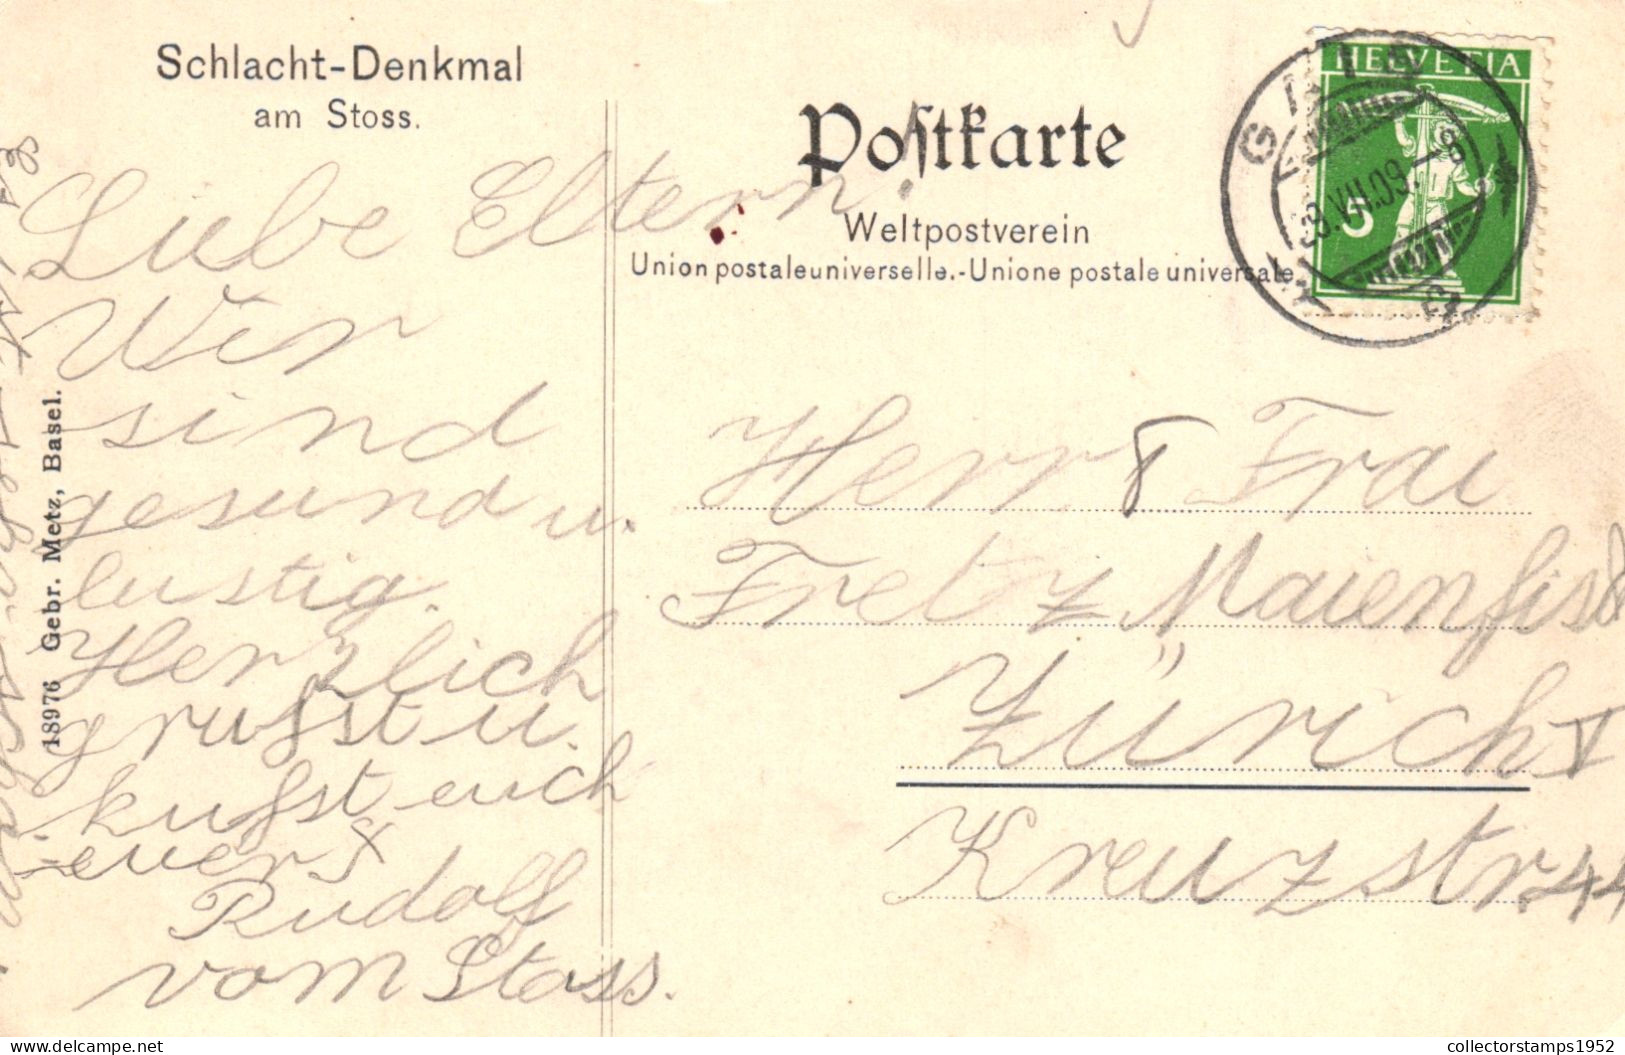 Schlacht-Denkmal
am Stoss.
Postkarte
Weltpostverein
Union postale universelle.-Unione postale universale.
HELVETIA
5
GAIS
VII.09.-8
18976 Gebr. Metz, Basel.
Liebe Eltern!
Wir
sind
gesund u.
lustig.
Herzlich
grusst u.
kusst euch
euer
Rudolf
vom Stoss.
Herr & Frau
Fretz Maienfisch
Zürich V
Kreuzstr. 44
collectorstamps1952